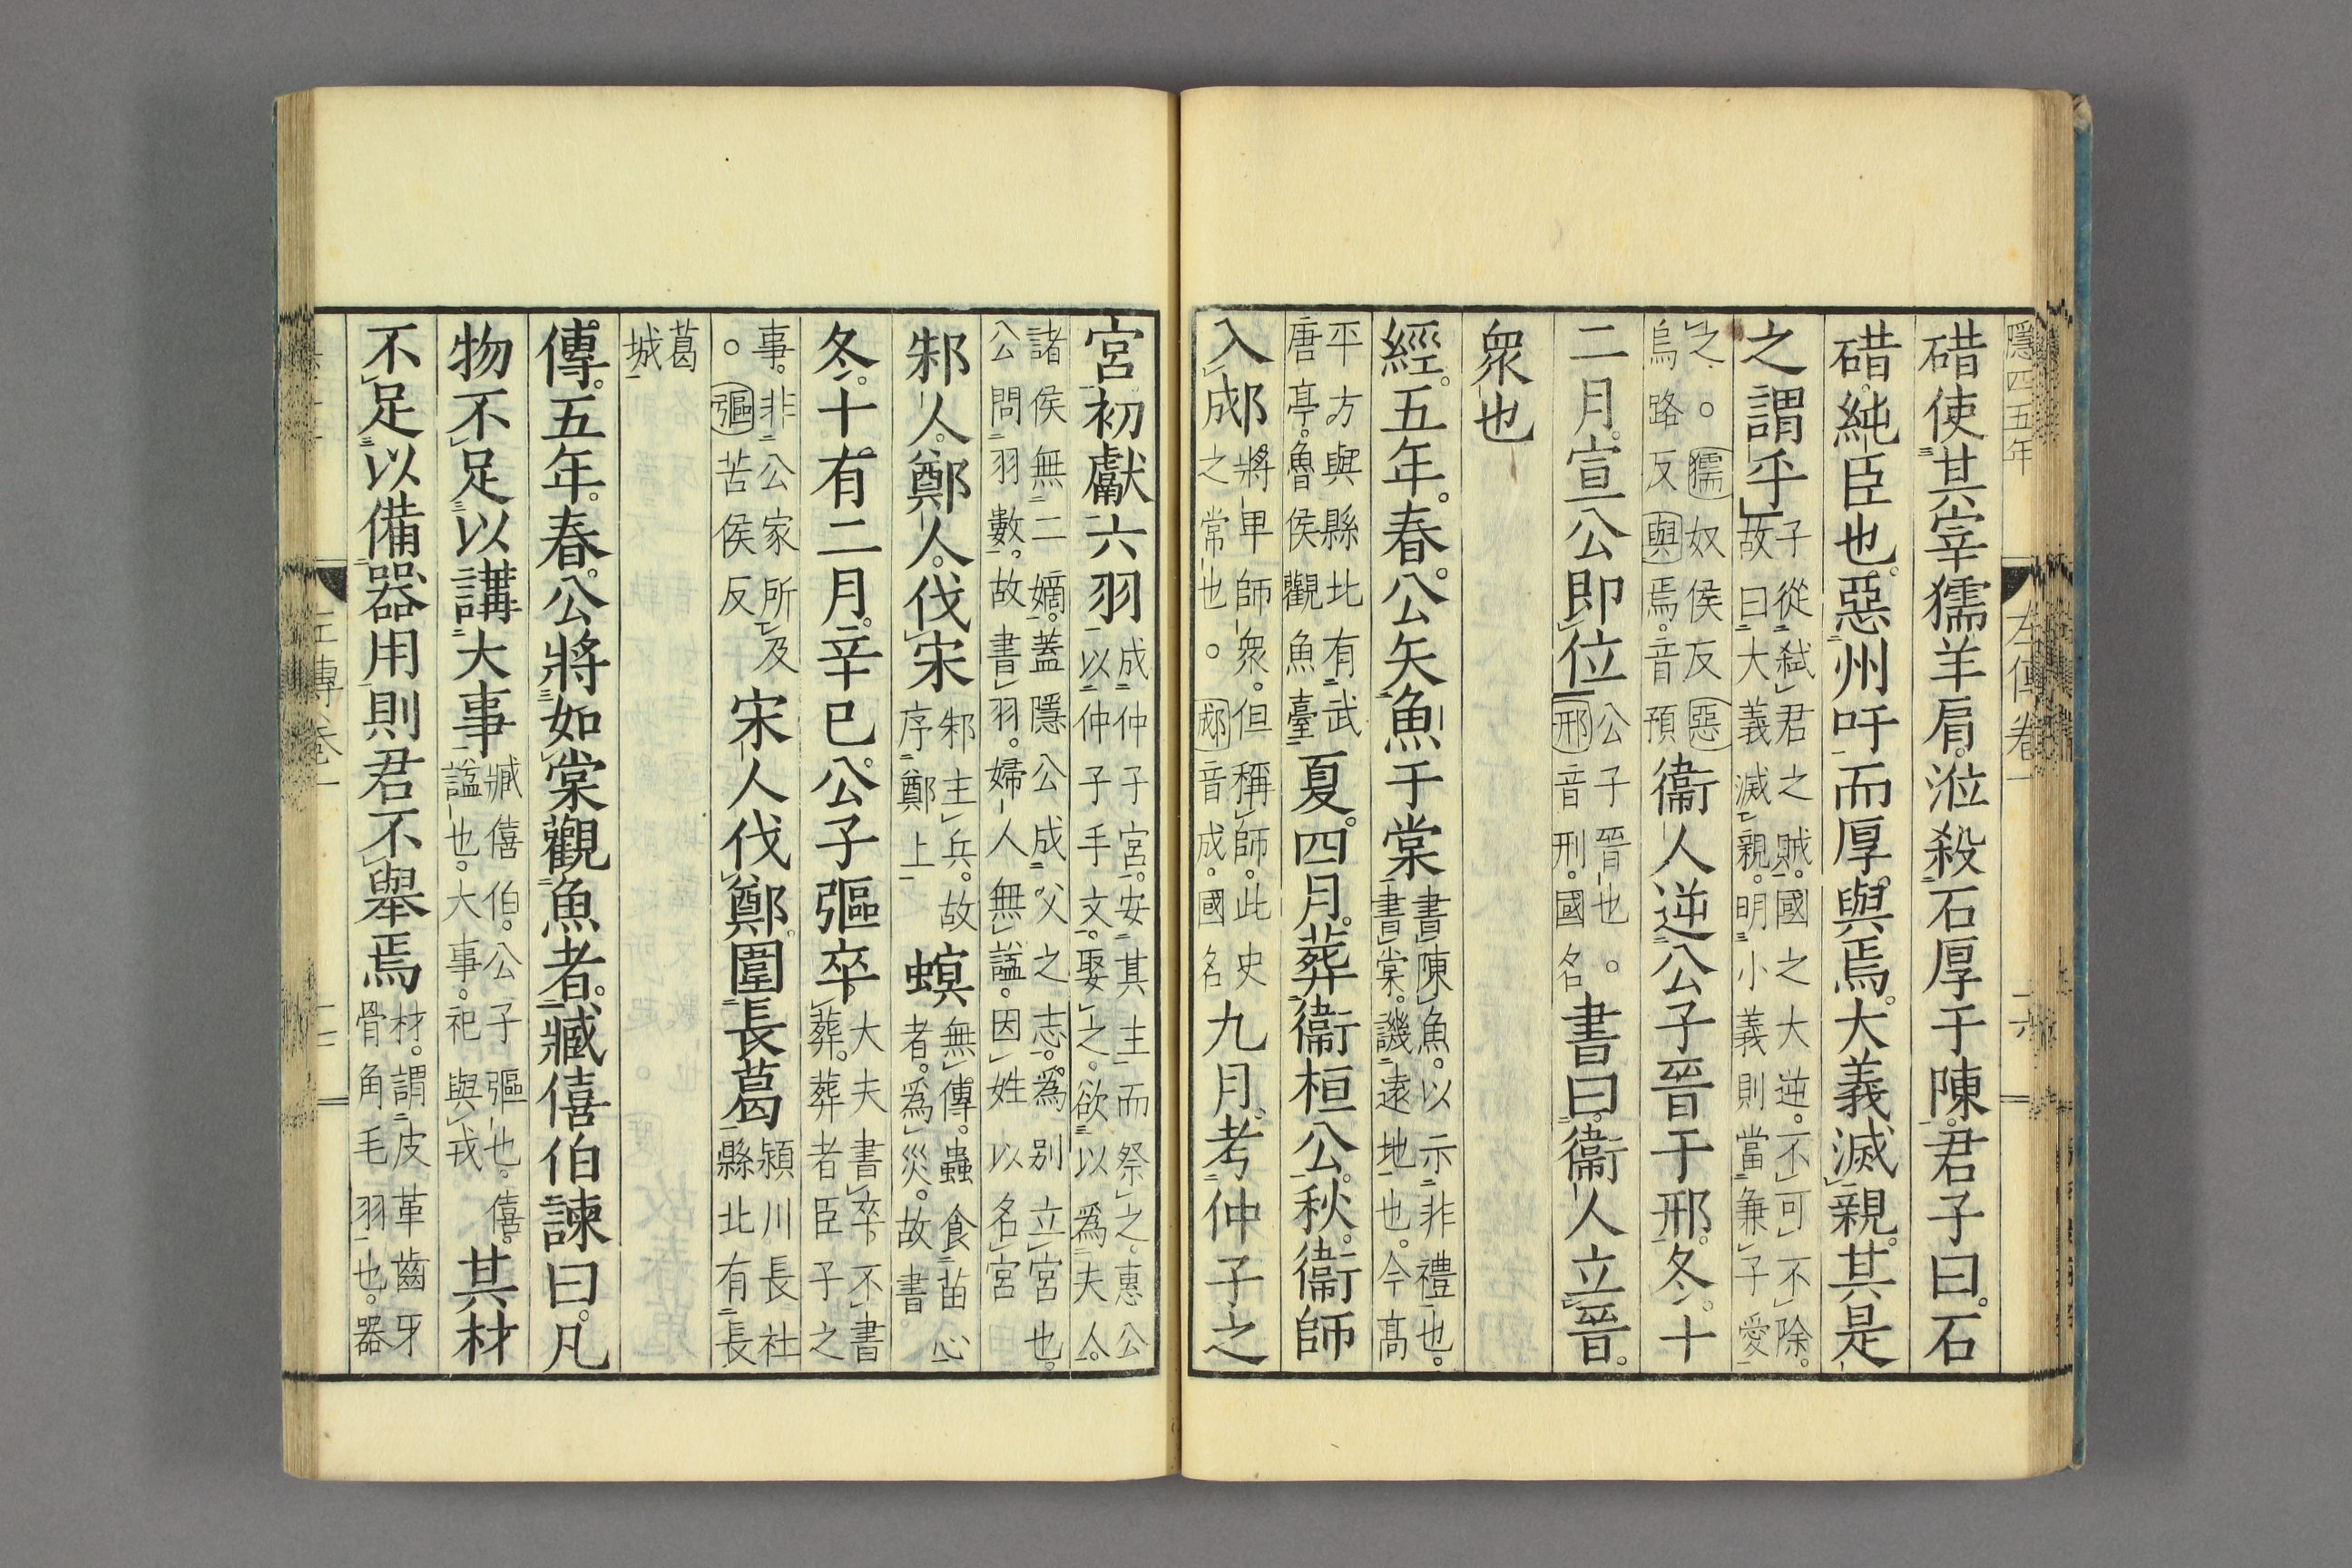 隱四五年
左傳卷一
十六
碏使其宰獳羊肩涖殺石厚于陳。君子曰。石
碏純臣也。惡州吁而厚與焉。大義滅親。其是
之謂乎子從弑君之賊。國之大逆。不可不除。故曰大義滅親。明小義則當兼子愛
之。○獳奴侯反惡烏路反與焉。音預衞人逆公子晉于邢。冬。十
二月。宣公即位公子晉也。○邢音刑。國名書曰。衞人立晉。
眾也
經。五年。春。公矢魚于棠書陳魚。以示非禮也。書棠。譏遠地也。今高
平方與縣北有武唐亭。魯侯觀魚臺夏。四月。葬衞桓公。秋。衞師
入郕將卑師眾。但稱師。此史之常也。○郕音成。國名九月。考仲子之
宮初獻六羽成仲子宮。安其主而祭之。惠公以仲子手文。娶之。欲以爲夫人。
諸侯無二嫡。蓋隱公成父之志。爲別立宮也。公問羽數。故書羽。婦人無謚。因姓以名宮
邾人。鄭人。伐宋邾主兵。故序鄭上螟無傳。蟲食苗心者。爲災。故書
冬。十有二月。辛巳。公子彄卒大夫書卒。不書葬。葬者臣子之
事。非公家所及。○彄苦侯反宋人伐鄭。圍長葛潁川長社縣北有長
葛城
傳。五年。春。公將如棠觀魚者。臧僖伯諫曰。凡
物不足以講大事臧僖伯。公子彄也。僖。謚也。大事。祀與戎其材
不足以備器用則君不舉焉材。謂皮革齒牙骨角毛羽也。器
左傳卷一